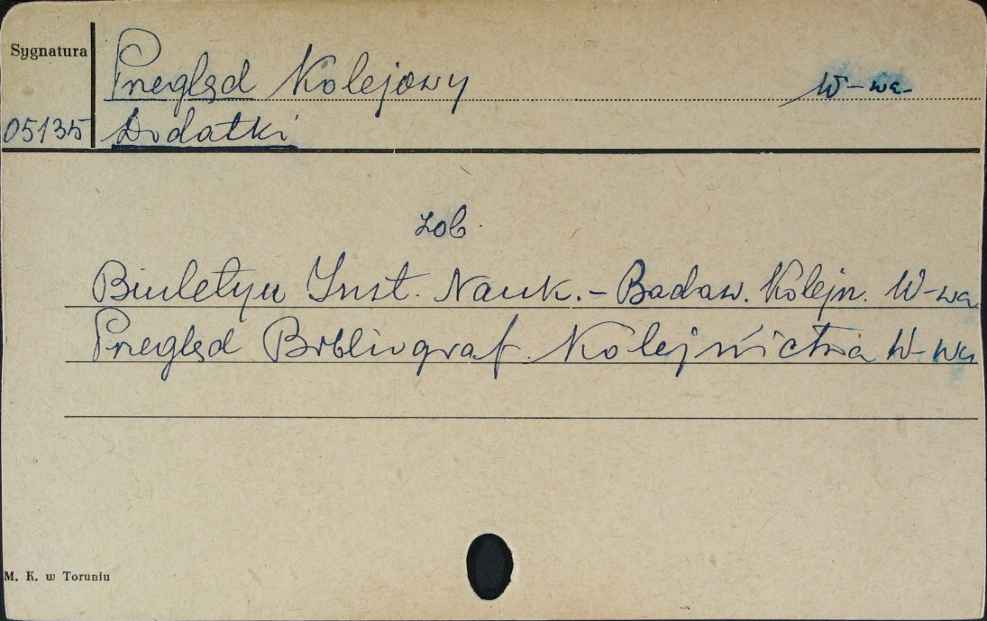 Sygnatura
Przegląd Kolejowy W-wa
05135
Dodatki
zob.
Biuletyn Inst. Nauk.-Badaw. Kolejn. W-wa
Przegląd Bibliograf. Kolejnictwa W-wa
M. K. w Toruniu